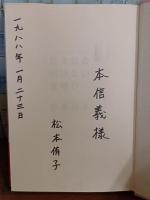 本信義様
一九八八年 一月二十三日
松本侑子